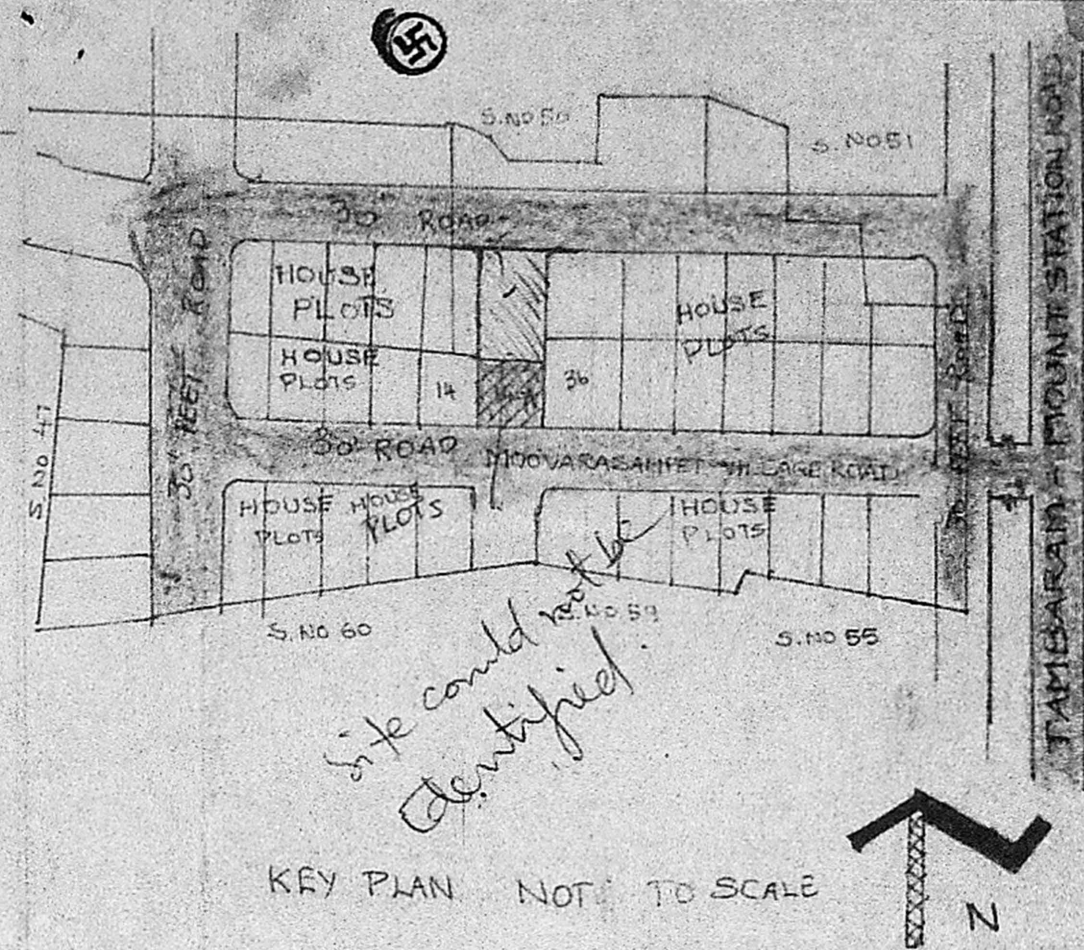 S. NO 50
S. NO 51
30' ROAD
HOUSE
PLOTS
HOUSE
PLOTS
HOUSE
PLOTS
14
36
30 FEET ROAD
30 FEET ROAD
TAMBARAM - MOUNT STATION ROAD
30' ROAD
MOOVARASAMPET VILLAGE ROAD
HOUSE
PLOTS
HOUSE
PLOTS
HOUSE
PLOTS
S. NO 60
S. NO 59
S. NO 55
Site could not be
identified.
KEY PLAN NOT TO SCALE
N